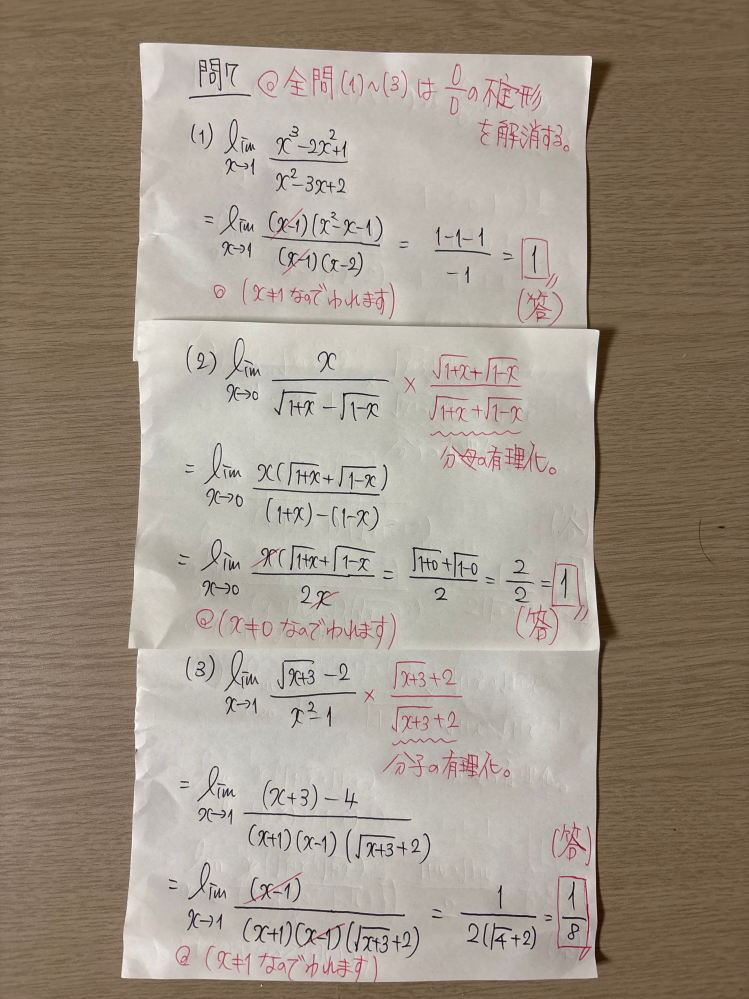 問7 @ 全問(1)~(3)は 0/0 の不定形
を解消する。
(1) lim x→1 (x³-2x²+1)/(x²-3x+2)
= lim x→1 (x-1)(x²-x-1)/(x-1)(x-2) = (1-1-1)/(-1) = 1
◎ (x≠1なのでわれます) (答)
(2) lim x→0 x/(√(1+x) - √(1-x)) × (√(1+x)+√(1-x))/(√(1+x)+√(1-x))
分母の有理化。
= lim x→0 x(√(1+x)+√(1-x))/((1+x)-(1-x))
= lim x→0 x(√(1+x)+√(1-x)/2x = (√(1+0)+√(1-0))/2 = 2/2 = 1
@ (x≠0なのでわれます) (答)
(3) lim x→1 (√(x+3) -2)/(x²-1) × (√(x+3)+2)/(√(x+3)+2)
分子の有理化。
= lim x→1 ((x+3)-4)/((x+1)(x-1)(√(x+3)+2))
(答)
= lim x→1 (x-1)/((x+1)(x-1)(√(x+3)+2)) = 1/(2(√4+2)) = 1/8
@ (x≠1なのでわれます)